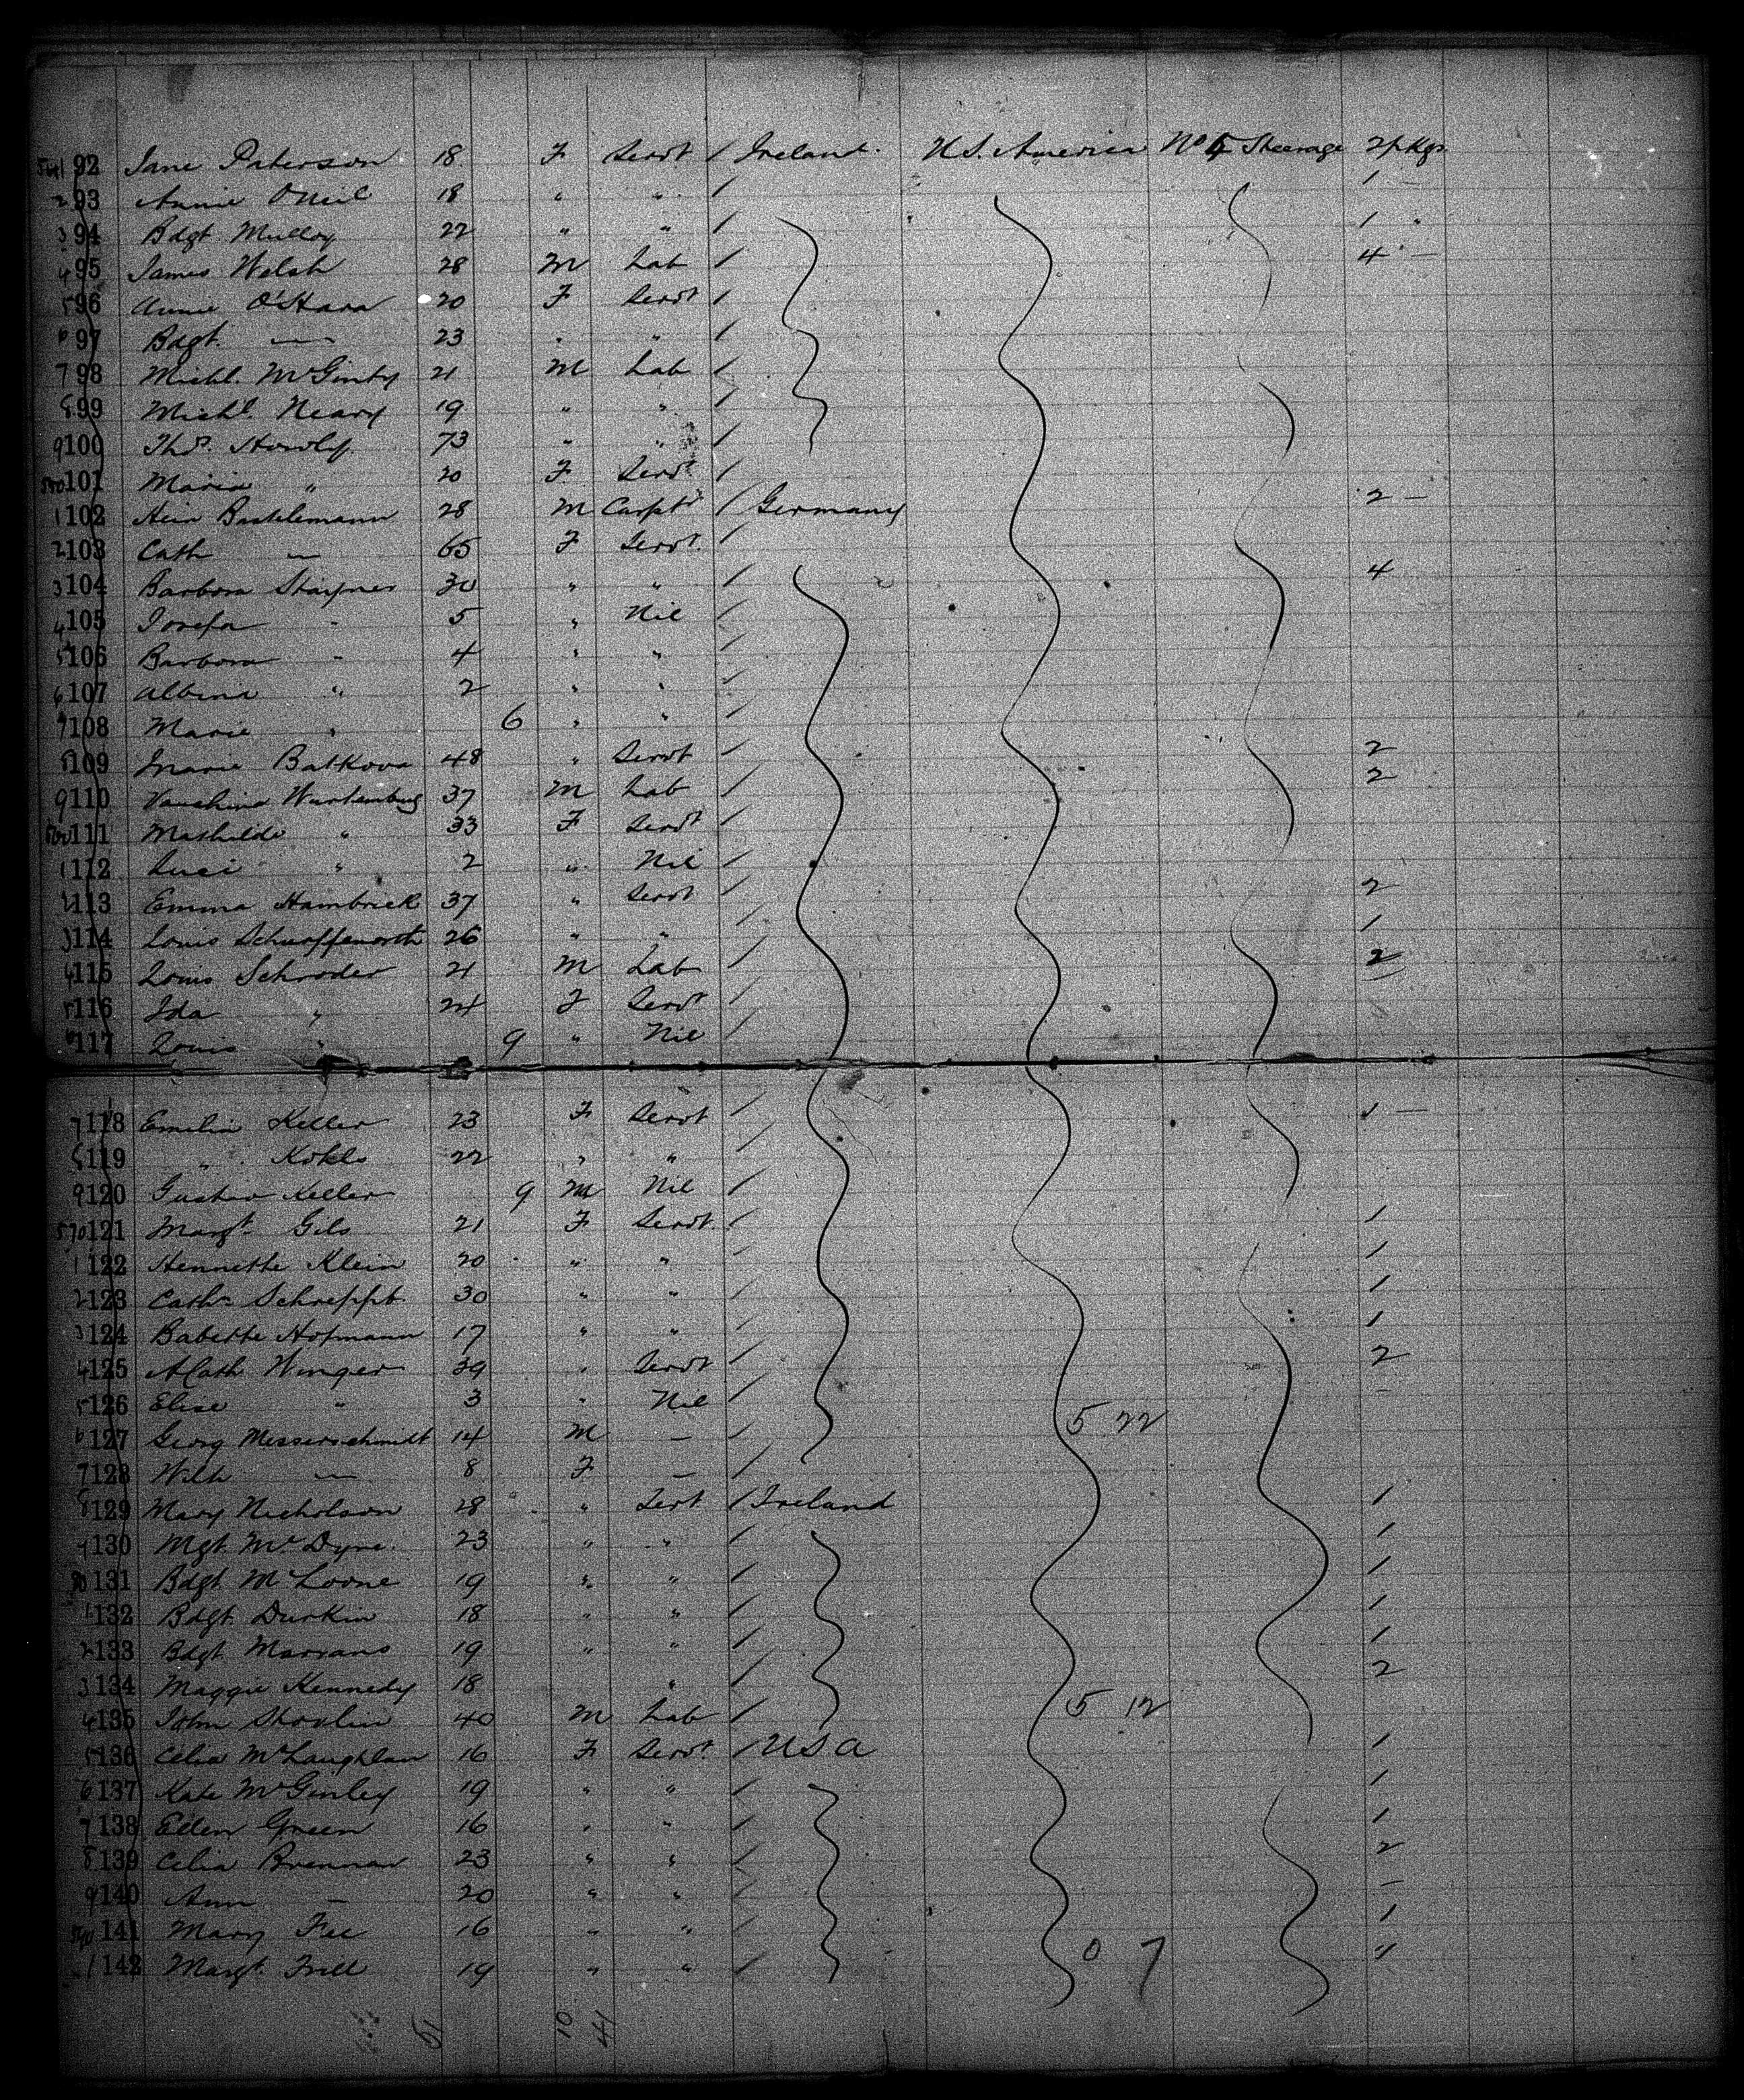 92 Jane Paterson 18 F Servt / Ireland. U.S. America No 4 Steerage 2 pkgs
93 Annie O'Neil 18 " " / 1 —
94 Bdgt. Mulloy 22 " " / 1 "
95 James Welsh 28 M Lab / 4 —
96 Annie O'Hara 20 F Servt /
97 Bdgt. — 23 " " /
98 Michl. McGinty 21 M Lab /
99 Michl. Neary 19 " " /
100 Thos. 73 " " /
101 Maria " 20 F Servt /
102 28 M Carptr / Germany 2 —
103 Cath — 65 F Servt. /
104 Barbora 30 " " / 4
105 Josefa " 5 " Nil /
106 Barbora " 4 " " /
107 Albina " 2 " " /
108 Marie " 6 " " /
109 Marie Batkova 48 " Servt / 2
110 Wurtemburg 37 M Lab / 2
111 Mathilde " 33 F Servt /
112 Luci " 2 " Nil /
113 Emma Hambrick 37 " Servt / 2
114 Louis 26 " " / 1
115 Louis Schroder 21 M Lab / 2
116 Ida " 24 F Servt /
117 Louis " 9 " Nil /
118 Emilia Keller 23 F Servt / 1 —
119 " 22 " " /
120 Gustav Keller 9 M Nil /
121 Margt. Gils 21 F Servt. / 1
122 Hennette Klein 20 " " / 1
123 Cathn Schreppt 30 " " / 1
124 Babette Hofmann 17 " " / 1
125 Winger 39 " Servt / 2
126 Elise " 3 " Nil / —
127 Georg Messerschmidt 14 M — / 5 22
128 Wilh — 8 F — /
129 Mary Nicholson 28 " Servt / Ireland 1
130 Mgt. McDyre. 23 " " / 1
131 Bdgt. McLoone 19 " " / 1
132 Bdgt. Durkin 18 " " / 1
133 Bdgt. 19 " " / 1
134 Maggie Kennedy 18 " / 2
135 John Shovlin 40 M Lab / 5 12
136 Celia McLaughlan 16 F Servt. / U S A 1
137 Kate McGinley 19 " " / 1
138 Ellen Green 16 " " / 1
139 Celia Brennan 23 " " / 2
140 Ann — 20 " " / —
141 Mary Fee 16 " " / 1
142 Margt. 19 " " / 0 7
51 10 41